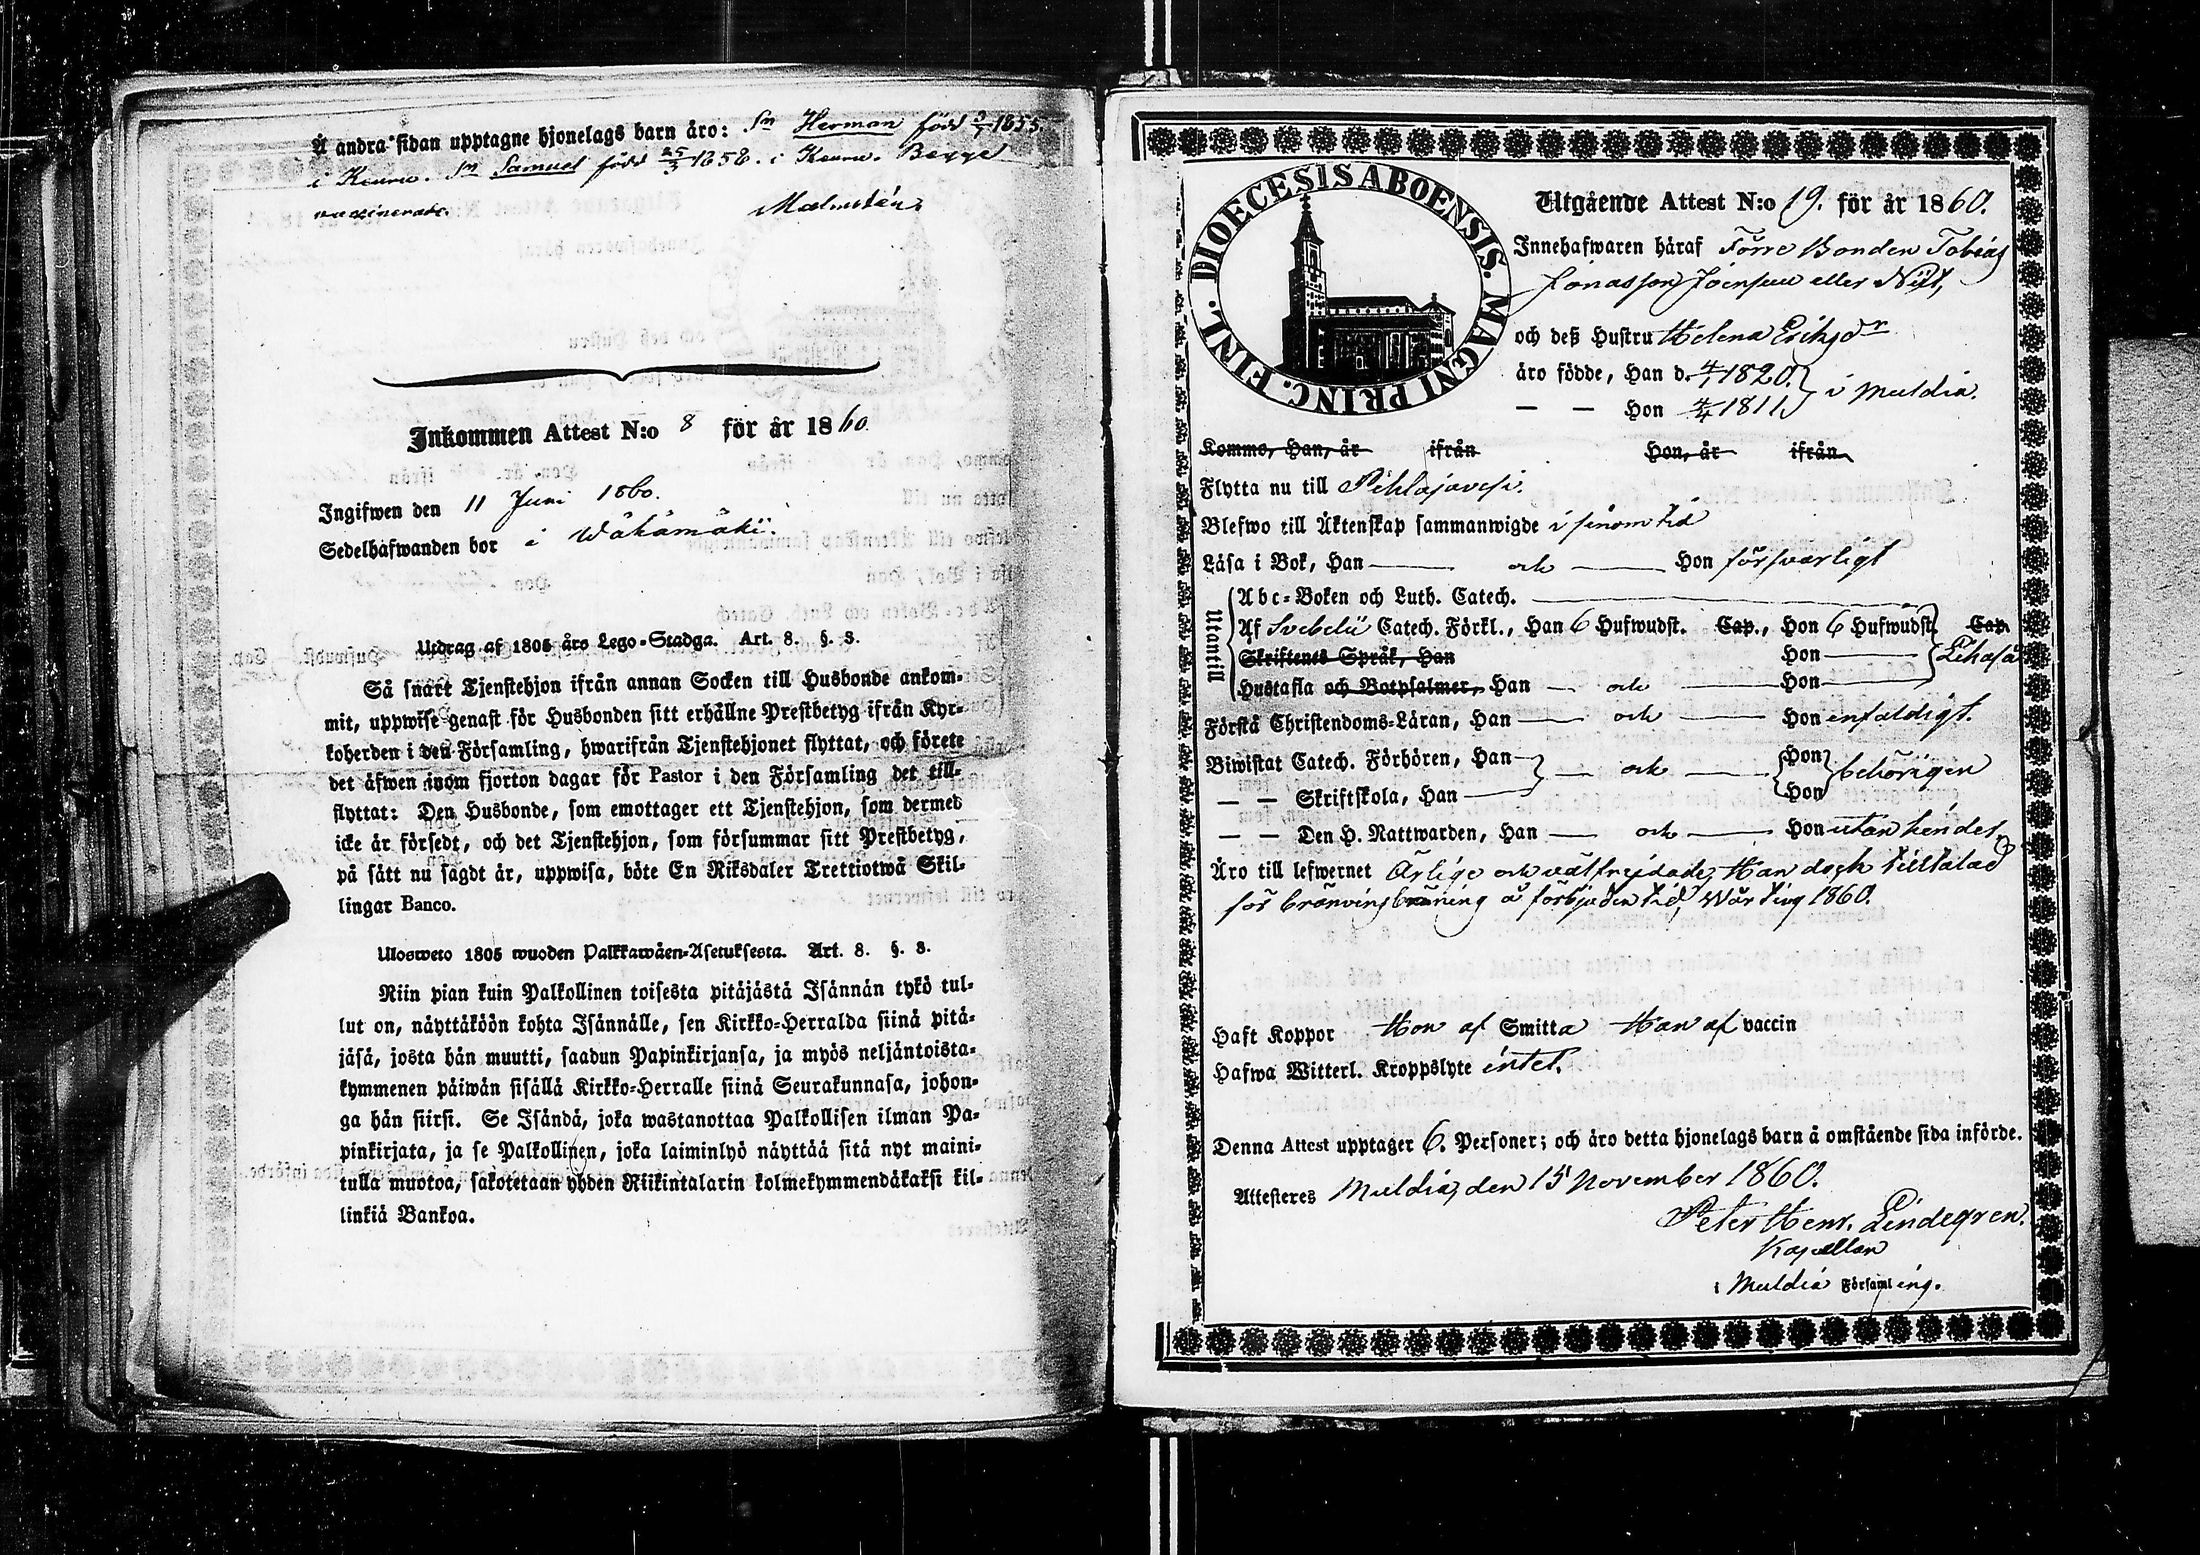 Å andra sidan upptagne hjonelags barn äro: Sn Herman född 9/7 1855
i Keuru. Sn Samuel född 25/3 1858. i Keuru. Begge
vaccinerade.
Malmstén.
Inkommen Attest N:o 8 för år 1860
Ingifwen den 11 Juni 1860.
Sedelhafwanden bor i Wähämäki.
Utdrag af 1805 års Lego-Stadga. Art. 8. §. 3.
Så snart Tjenstehjon ifrån annan Socken till Husbonde ankom-
mit, uppwise genast för Husbonden sitt erhållne Prestbetyg ifrån Kyr-
koherden i den Församling, hwarifrån Tjenstehjonet flyttat, och förete
det äfwen inom fjorton dagar för Pastor i den Församling det till-
flyttat: Den Husbonde, som emottager ett Tjenstehjon, som dermed
icke är försedt, och det Tjenstehjon, som försummar sitt Prestbetyg,
på sätt nu sagdt är, uppwisa, böte En Riksdaler Trettiotwå Skil-
lingar Banco.
Ulosweto 1805 wuoden Palkkawäen-Asetuksesta. Art. 8. §. 3.
Niin pian kuin Palkollinen toisesta pitäjästä Isännän tykö tul-
lut on, näyttäköön kohta Isännälle, sen Kirkko-Herralda siinä pitä-
jäsä, josta hän muutti, saadun Papinkirjansa, ja myös neljäntoista-
kymmenen päiwän sisällä Kirkko-Herralle siinä Seurakunnasa, johon-
ga hän siirsi. Se Isändä, joka wastanottaa Palkollisen ilman Pa-
pinkirjata, ja se Palkollinen, joka laiminlyö näyttää sitä nyt maini-
tulla muotoa, sakotetaan yhden Riikintalarin kolmekymmendäkaksi kil-
linkiä Bankoa.
DIOECESIS ABOENSIS. MAGNI PRINC. FINL.
Utgående Attest N:o 19. för år 1860.
Innehafwaren häraf Förre Bonden Tobias
Jonasson Joensuu eller Niit,
och deß Hustru Helena Eriksdr
äro födde, Han d. 4/1 1820. } i Muldia.
— — Hon 4/4 1811
Kommo, Han, år ifrån Hon, år ifrån
Flytta nu till Pihlajavesi.
Blefwo till Äktenskap sammanwigde i sinom tid
Läsa i Bok, Han — och — Hon försvarligt
Utantill
Abc-Boken och Luth. Catech. —
Af Svebelii Catech. Förkl., Han 6 Hufwudst. Cap., Hon 6 Hufwudst. Cap.
Skriftenes Språk, Han Hon —
Hustafla och Botpsalmer, Han — och — Hon —
Förstå Christendoms-Läran, Han — och — Hon enfaldigt.
Biwistat Catech. Förhören, Han — och — Hon behörigen
— — Skriftskola, Han — Hon
— — Den H. Nattwarden, Han — och — Hon utan hinder
Äro till lefwernet Ärlige och välfrejdade, Han dock tilltalad
för bränvinsbränning å förbjuden tid, Wårting 1860.
Haft Koppor Hon af Smitta Han af vaccin
Hafwa Witterl. Kroppslyte intet.
Denna Attest upptager 6. Personer; och äro detta hjonelags barn å omstående sida införde.
Attesteres Muldia, den 15 November 1860.
Peter Henr. Lindegren.
Kapellan
i Muldia Församling.